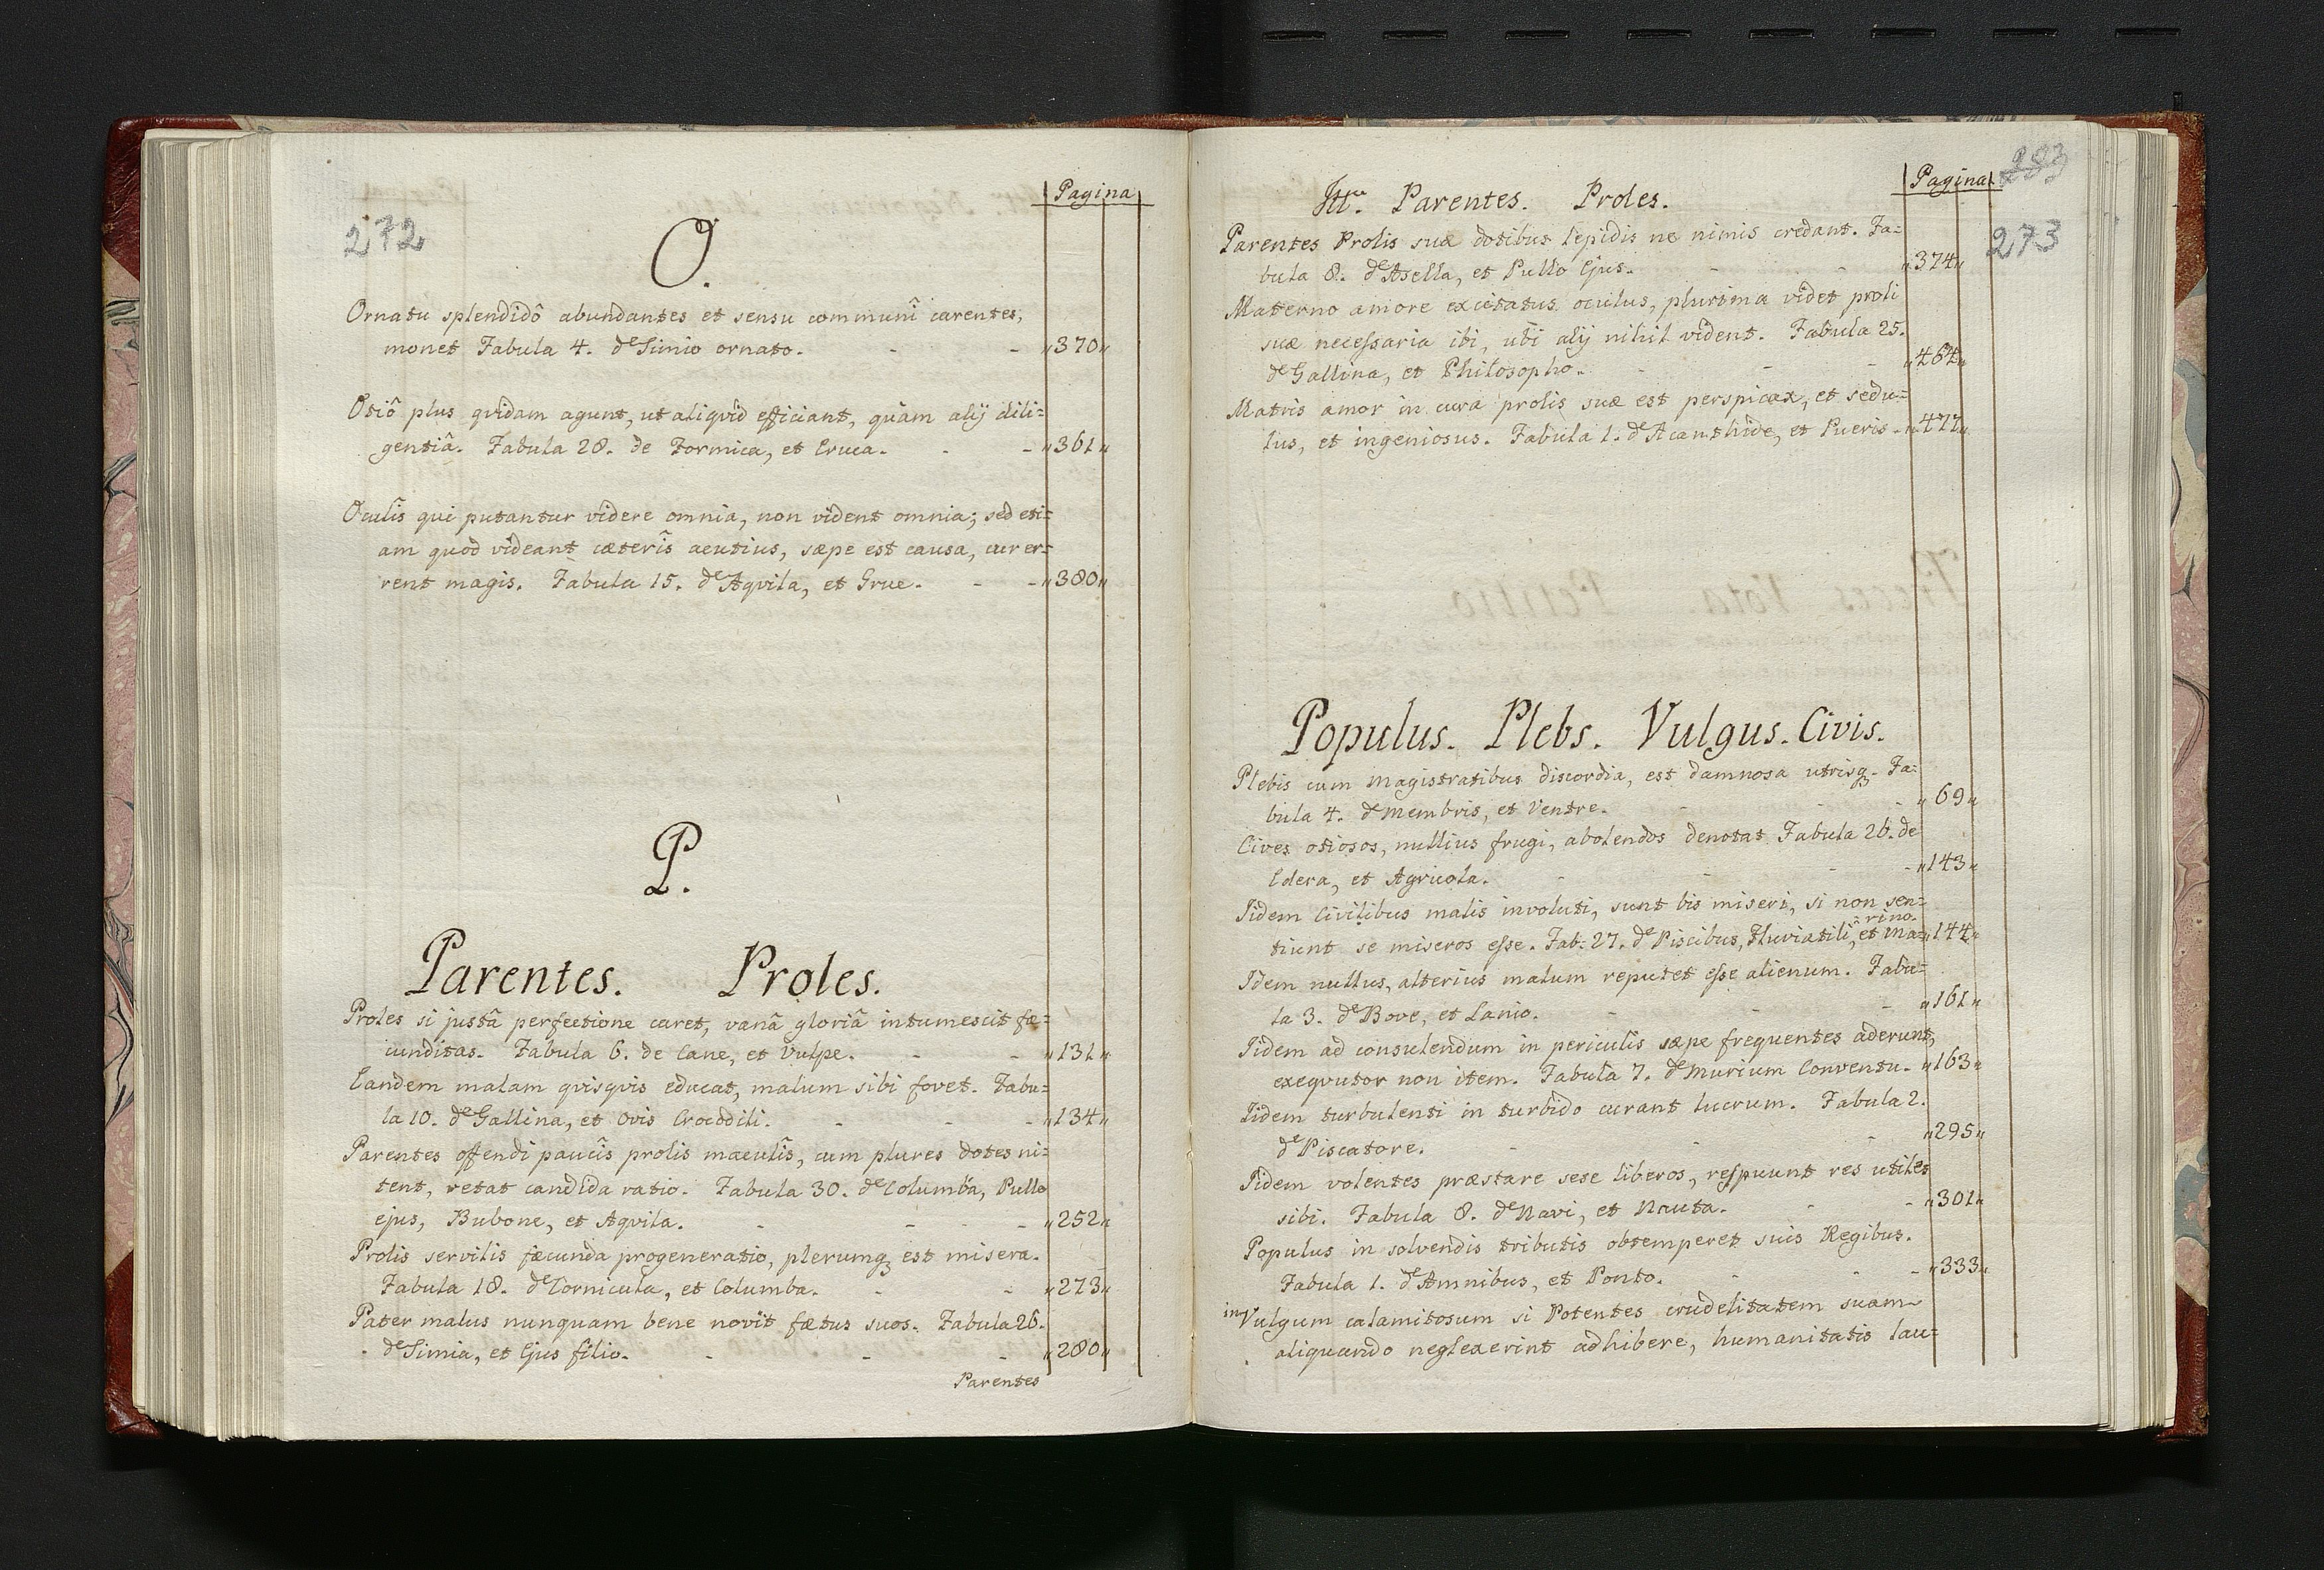 Pagina
272
O.
Ornatu splendidô abundantes et sensu communî carentes,
monet Fabula 4. de Simio ornato. - - „370„
Otiô plus qvidam agunt, ut aliqvid efficiant, quàm alÿ dili=
gentiâ. Fabula 28. de Formica, et Eruca. - - „361„
Oculîs qui putantur videre omnia, non vident omnia; sed eti=
am quod videant cæterîs acutius, sæpe est causa, cur er=
rent magis. Fabula 15. de Aqvila, et Grue. - - „380„
P.
Parentes. Proles.
Proles si justâ perfectione caret, vanâ gloriâ intumescit fæ=
cunditas. Fabula 6. de Cane, et Vulpe. - - „131„
Eandem malam qvisqvis educat, malum sibi fovet. Fabu=
la 10. de Gallina, et Ovis Crocodili. - - - „134„
Parentes offendi paucîs prolis maculîs, cum plures dotes ni=
tent, vetat candida ratio. Fabula 30. de Columba, Pullo
ejus, Bubone, et Aqvila. - - - „252„
Prolis servilis fæcunda progeneratio, plerumqꝫ est misera.
Fabula 18. de Cornicula, et Columba. - - „273„
Pater malus nunquam bene novit fætus suos. Fabula 26.
de Simia, et Ejus filio. - - - „280„
Parentes
Pagina
273
Parentes. Proles.
273
Parentes Prolis suæ dotibus lepidis ne nimis credant. Fa=
bula 8. de Asella, et Pullo Ejus. - - „374„
Materno amore excitatus oculus, plurima videt proli
suæ necessaria ibi, ubi alÿ nihil vident. Fabula 25.
de Gallina, et Philosopho. - - - „464„
Matris amor in cura prolis suæ est perspicax, et sedu=
lus, et ingeniosus. Fabula 1. de Acanthide, et Pueris - „477„
Populus. Plebs. Vulgus. Civis.
Plebis cum Magistratibus discordia, est damnosa utrisqꝫ. Fa=
bula 4. de Membris, et Ventre. - - - „69„
Cives otiosos, nullius frugi, abolendos denotat Fabula 26. de
Edera, et Agricola. - - - - „143„
Iidem Civilibus malis involuti, sunt bis miseri, si non sen=
tiunt se miseros esse. Fab: 27. de Piscibus, Fluviatili, et Ma= „144„
rino.
Idem nullus, alterius malum reputet esse alienum. Fabu=
la 3. de Bove, et Lanio. - - - „161„
Iidem ad consulendum in periculis sæpe frequentes aderunt,
exeqvutor non item. Fabula 7. de Murium Conventu. - „163„
Iidem turbulenti in turbido curant lucrum. Fabula 2.
de Piscatore. - - - „295„
Iidem volentes præstare sese liberos, respuunt res utiles
sibi. Fabula 8. de Navi, et Nauta. - - „301„
Populus in solvendis tributis obtemperet suis Regibus.
Fabula 1. de Amnibus, et Ponto. - - - „333„
in Vulgum calamitosum si Potentes crudelitatem suam
aliquando neglexerint adhibere, humanitatis lau=